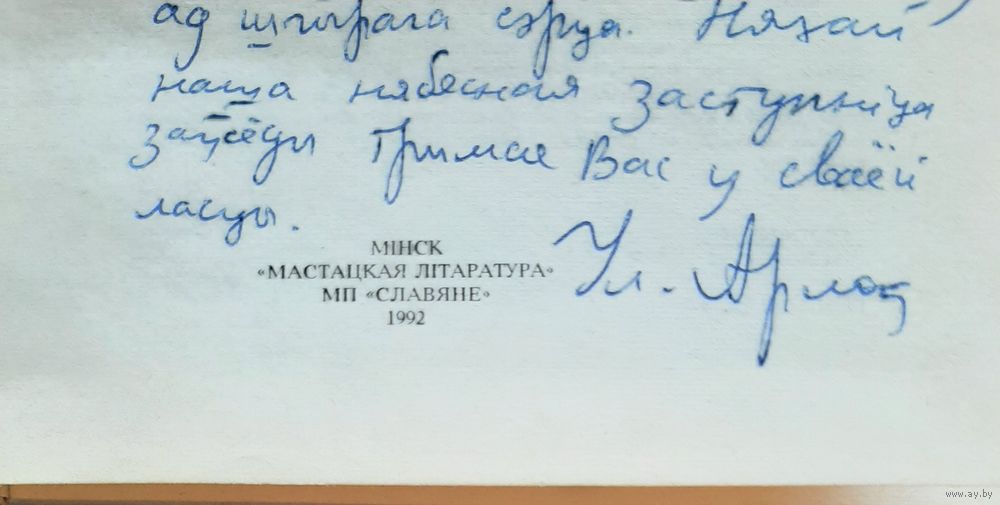 ад шчырага сэрца. Няхай
наша нябесная заступніца
заўсёды трымае Вас у сваёй
ласцы.
Ул. Арлоў
МІНСК
«МАСТАЦКАЯ ЛІТАРАТУРА»
МП «СЛАВЯНЕ»
1992
www.ay.by